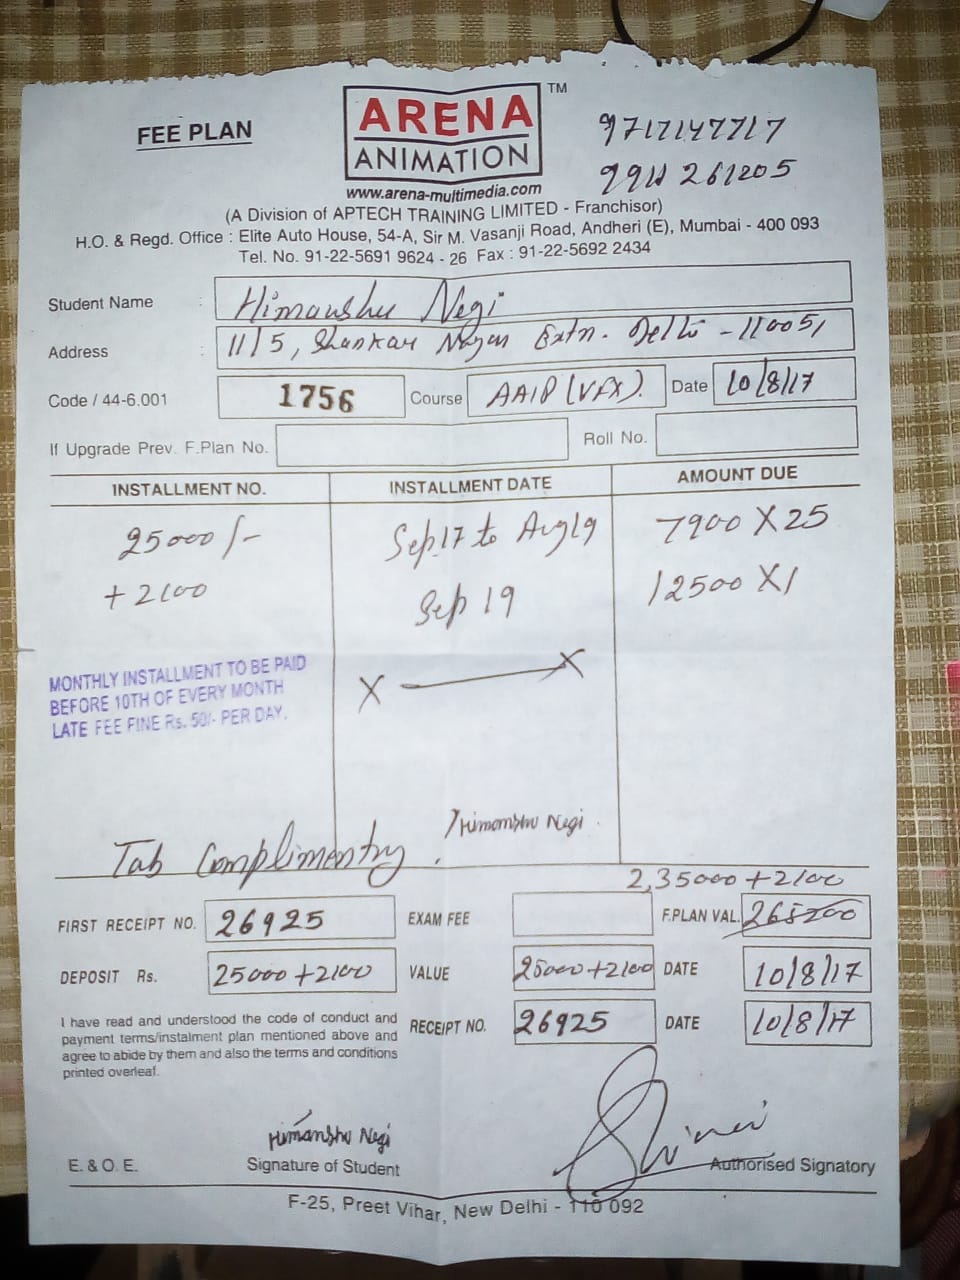 FEE PLAN
ARENA
ANIMATION
TM
9717147717
9911261205
www.arena-multimedia.com
(A Division of APTECH TRAINING LIMITED - Franchisor)
H.O. & Regd. Office : Elite Auto House, 54-A, Sir M. Vasanji Road, Andheri (E), Mumbai - 400 093
Tel. No. 91-22-5691 9624 - 26 Fax : 91-22-5692 2434
Student Name : Himanshu Negi
Address : 11/5, Shankar Nagar Extn. Delhi - 110051
Code / 44-6.001 1756 Course AAIP (VFX). Date 10/8/17
If Upgrade Prev. F.Plan No. Roll No.
INSTALLMENT NO. INSTALLMENT DATE AMOUNT DUE
25000/- Sep17 to Aug19 7900 X 25
+2100 Sep 19 12500 X1
MONTHLY INSTALLMENT TO BE PAID
BEFORE 10TH OF EVERY MONTH
LATE FEE FINE Rs. 50/- PER DAY.
X — X
Himanshu Negi
Tab Complimentry.
2,35000+2100
FIRST RECEIPT NO. 26925 EXAM FEE F.PLAN VAL. 265200
DEPOSIT Rs. 25000+2100 VALUE 25000+2100 DATE 10/8/17
RECEIPT NO. 26925 DATE 10/8/17
I have read and understood the code of conduct and
payment terms/instalment plan mentioned above and
agree to abide by them and also the terms and conditions
printed overleaf.
Himanshu Negi
E. & O. E. Signature of Student Authorised Signatory
F-25, Preet Vihar, New Delhi - 110 092